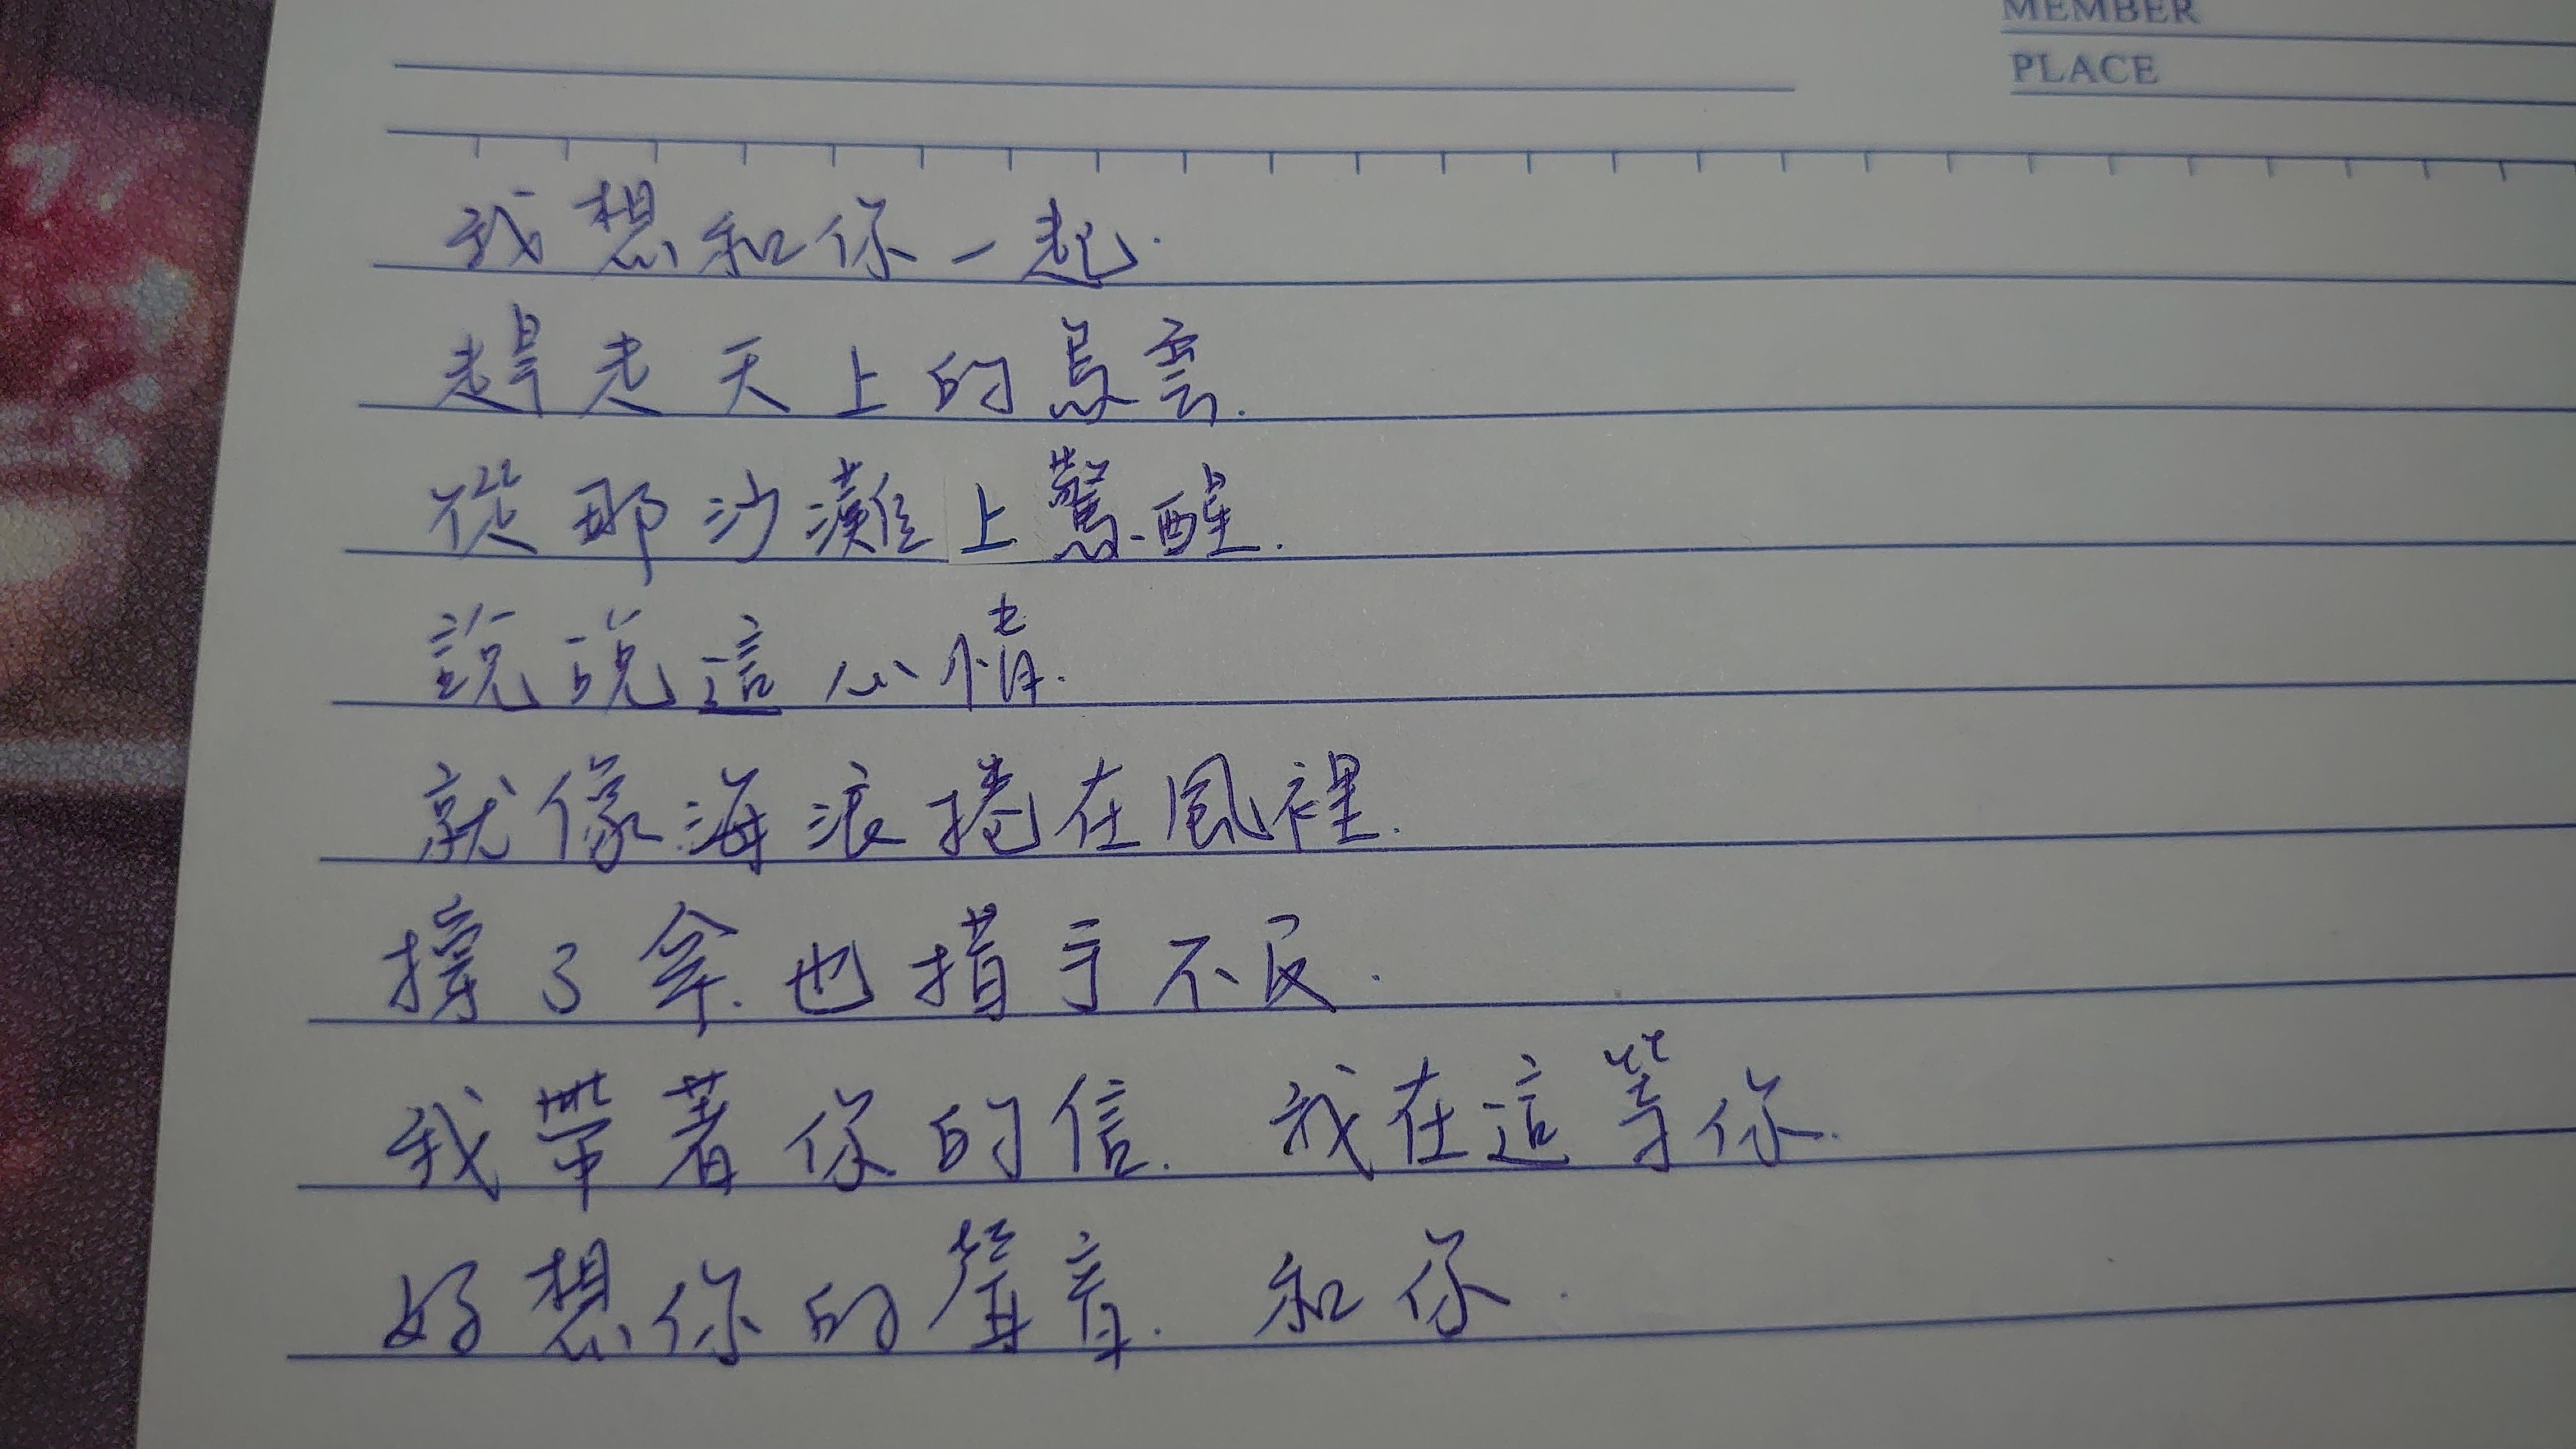 MEMBER
PLACE
我想和你一起.
趕走天上的烏雲.
從那沙灘上驚醒.
說說這心情.
就像海浪捲在風裡.
撐了傘也措手不及.
我帶著你的信. 我在這等你.
好想你的聲音. 和你.